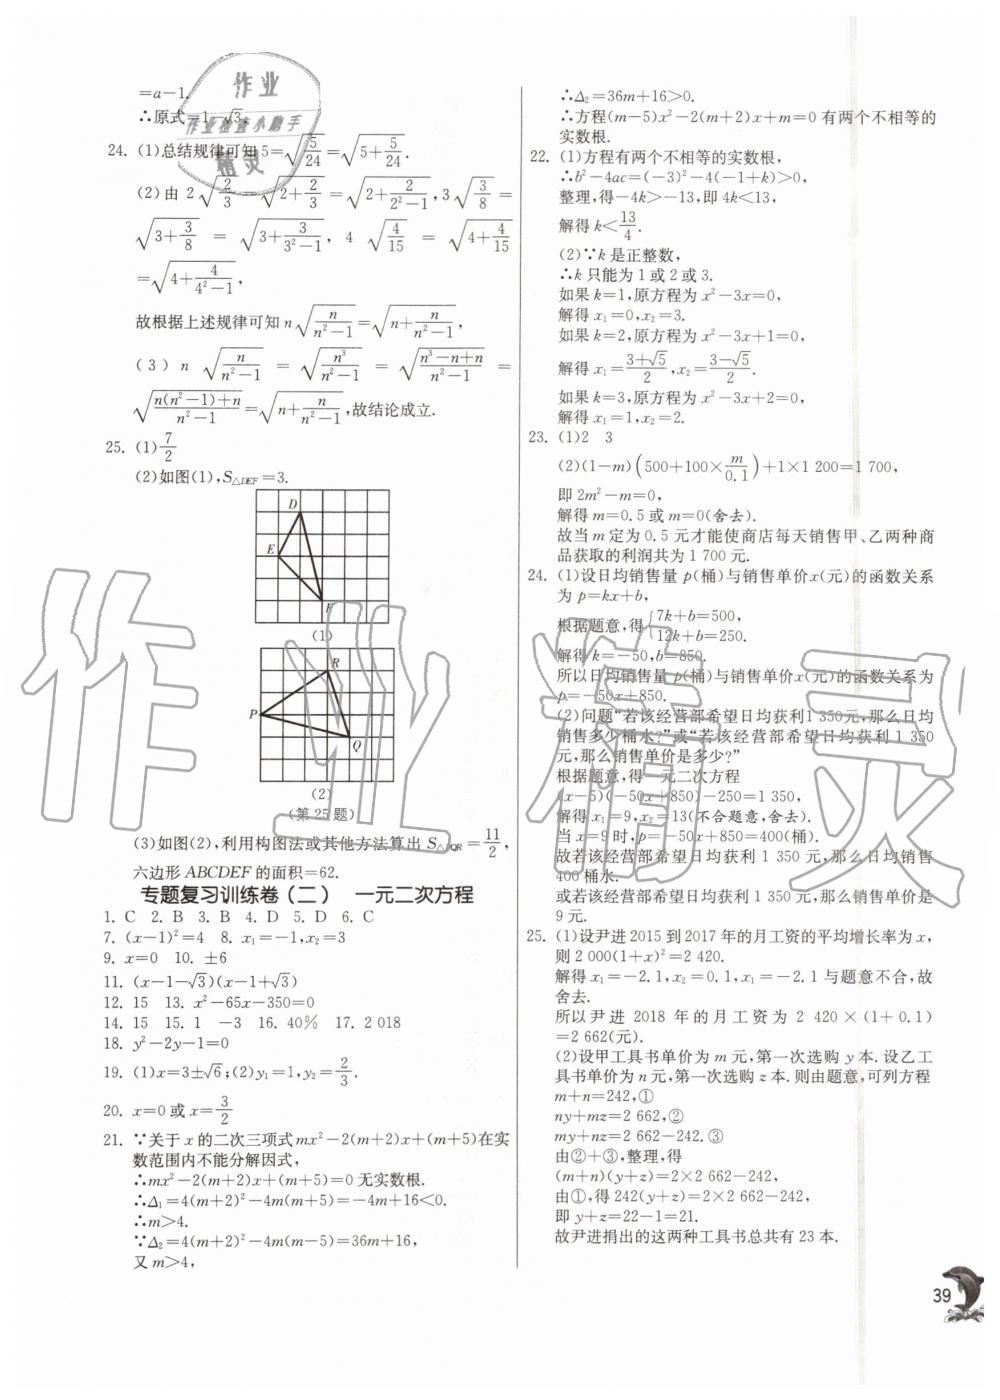 =a-1.
∴原式=1-√3.
24. (1)总结规律可知5=√(5/24)=√(5+5/24).
(2)由 2√(2/3)=√(2+2/3)=√(2+2/(2²-1)),3√(3/8)=
√(3+3/8) = √(3+3/(3²-1)), 4 √(4/15) = √(4+4/15)
=√(4+4/(4²-1)),
故根据上述规律可知 n√(n/(n²-1))=√(n+n/(n²-1)),
(3) n √(n/(n²-1)) = √(n³/(n²-1)) = √((n³-n+n)/(n²-1)) =
√((n(n²-1)+n)/(n²-1))=√(n+n/(n²-1)),故结论成立.
25. (1)7/2
(2)如图(1),S△DEF=3.
D
E
F
(1)
R
P
Q
(2)
(第25题)
(3)如图(2),利用构图法或其他方法算出 S△PQR=11/2,
六边形 ABCDEF 的面积=62.
专题复习训练卷(二) 一元二次方程
1. C 2. B 3. B 4. D 5. D 6. C
7. (x-1)²=4 8. x₁=-1,x₂=3
9. x=0 10. ±6
11. (x-1-√3)(x-1+√3)
12. 15 13. x²-65x-350=0
14. 15 15. 1 -3 16. 40% 17. 2 018
18. y²-2y-1=0
19. (1)x=3±√6;(2)y₁=1,y₂=2/3.
20. x=0 或 x=3/2
21. ∵关于 x 的二次三项式mx²-2(m+2)x+(m+5)在实
数范围内不能分解因式,
∴mx²-2(m+2)x+(m+5)=0 无实数根.
∴Δ₁=4(m+2)²-4m(m+5)=-4m+16<0.
∴m>4.
∵Δ₂=4(m+2)²-4m(m-5)=36m+16,
又 m>4,
∴Δ₂=36m+16>0.
∴方程(m-5)x²-2(m+2)x+m=0 有两个不相等的
实数根.
22. (1)方程有两个不相等的实数根,
∴b²-4ac=(-3)²-4(-1+k)>0,
整理,得-4k>-13,即 4k<13,
解得 k<13/4.
(2)∵k 是正整数,
∴k 只能为 1 或 2 或 3.
如果 k=1,原方程为 x²-3x=0,
解得 x₁=0,x₂=3.
如果 k=2,原方程为 x²-3x+1=0,
解得 x₁=(3+√5)/2,x₂=(3-√5)/2.
如果 k=3,原方程为 x²-3x+2=0,
解得 x₁=1,x₂=2.
23. (1)2 3
(2)(1-m)(500+100×m/0.1)+1×1 200=1 700,
即 2m²-m=0,
解得 m=0.5 或 m=0(舍去).
故当 m 定为 0.5 元才能使商店每天销售甲、乙两种商
品获取的利润共为 1 700 元.
24. (1)设日均销售量 p(桶)与销售单价x(元)的函数关系
为 p=kx+b,
根据题意,得{7k+b=500,
12k+b=250.
解得 k=-50,b=850.
所以日均销售量 p(桶)与销售单价x(元)的函数关系为
p=-50x+850.
(2)问题“若该经营部希望日均获利1 350元,那么日均
销售多少桶水?”或“若该经营部希望日均获利 1 350
元,那么销售单价是多少?”
根据题意,得一元二次方程
(x-5)(-50x+850)-250=1 350,
解得 x₁=9,x₂=13(不合题意,舍去).
当x=9时,p=-50x+850=400(桶).
故若该经营部希望日均获利 1 350 元,那么日均销售
400桶水.
或若该经营部希望日均获利 1 350元,那么销售单价是
9 元.
25. (1)设尹进 2015 到 2017 年的月工资的平均增长率为 x,
则 2 000(1+x)²=2 420.
解得 x₁=-2.1,x₂=0.1,x=-2.1 与题意不合,故
舍去.
所以尹进 2018 年的月工资为 2 420×(1+0.1)
=2 662(元).
(2)设甲工具书单价为 m 元,第一次选购 y 本.设乙工
具书单价为 n 元,第一次选购 z 本.则由题意,可列方程
m+n=242,①
ny+mz=2 662,②
my+nz=2 662-242.③
由②+③,整理,得
(m+n)(y+z)=2×2 662-242,
由①,得 242(y+z)=2×2 662-242,
即 y+z=22-1=21.
故尹进捐出的这两种工具书总共有 23 本.
39
作业
作业检查小助手
精灵
作业精灵